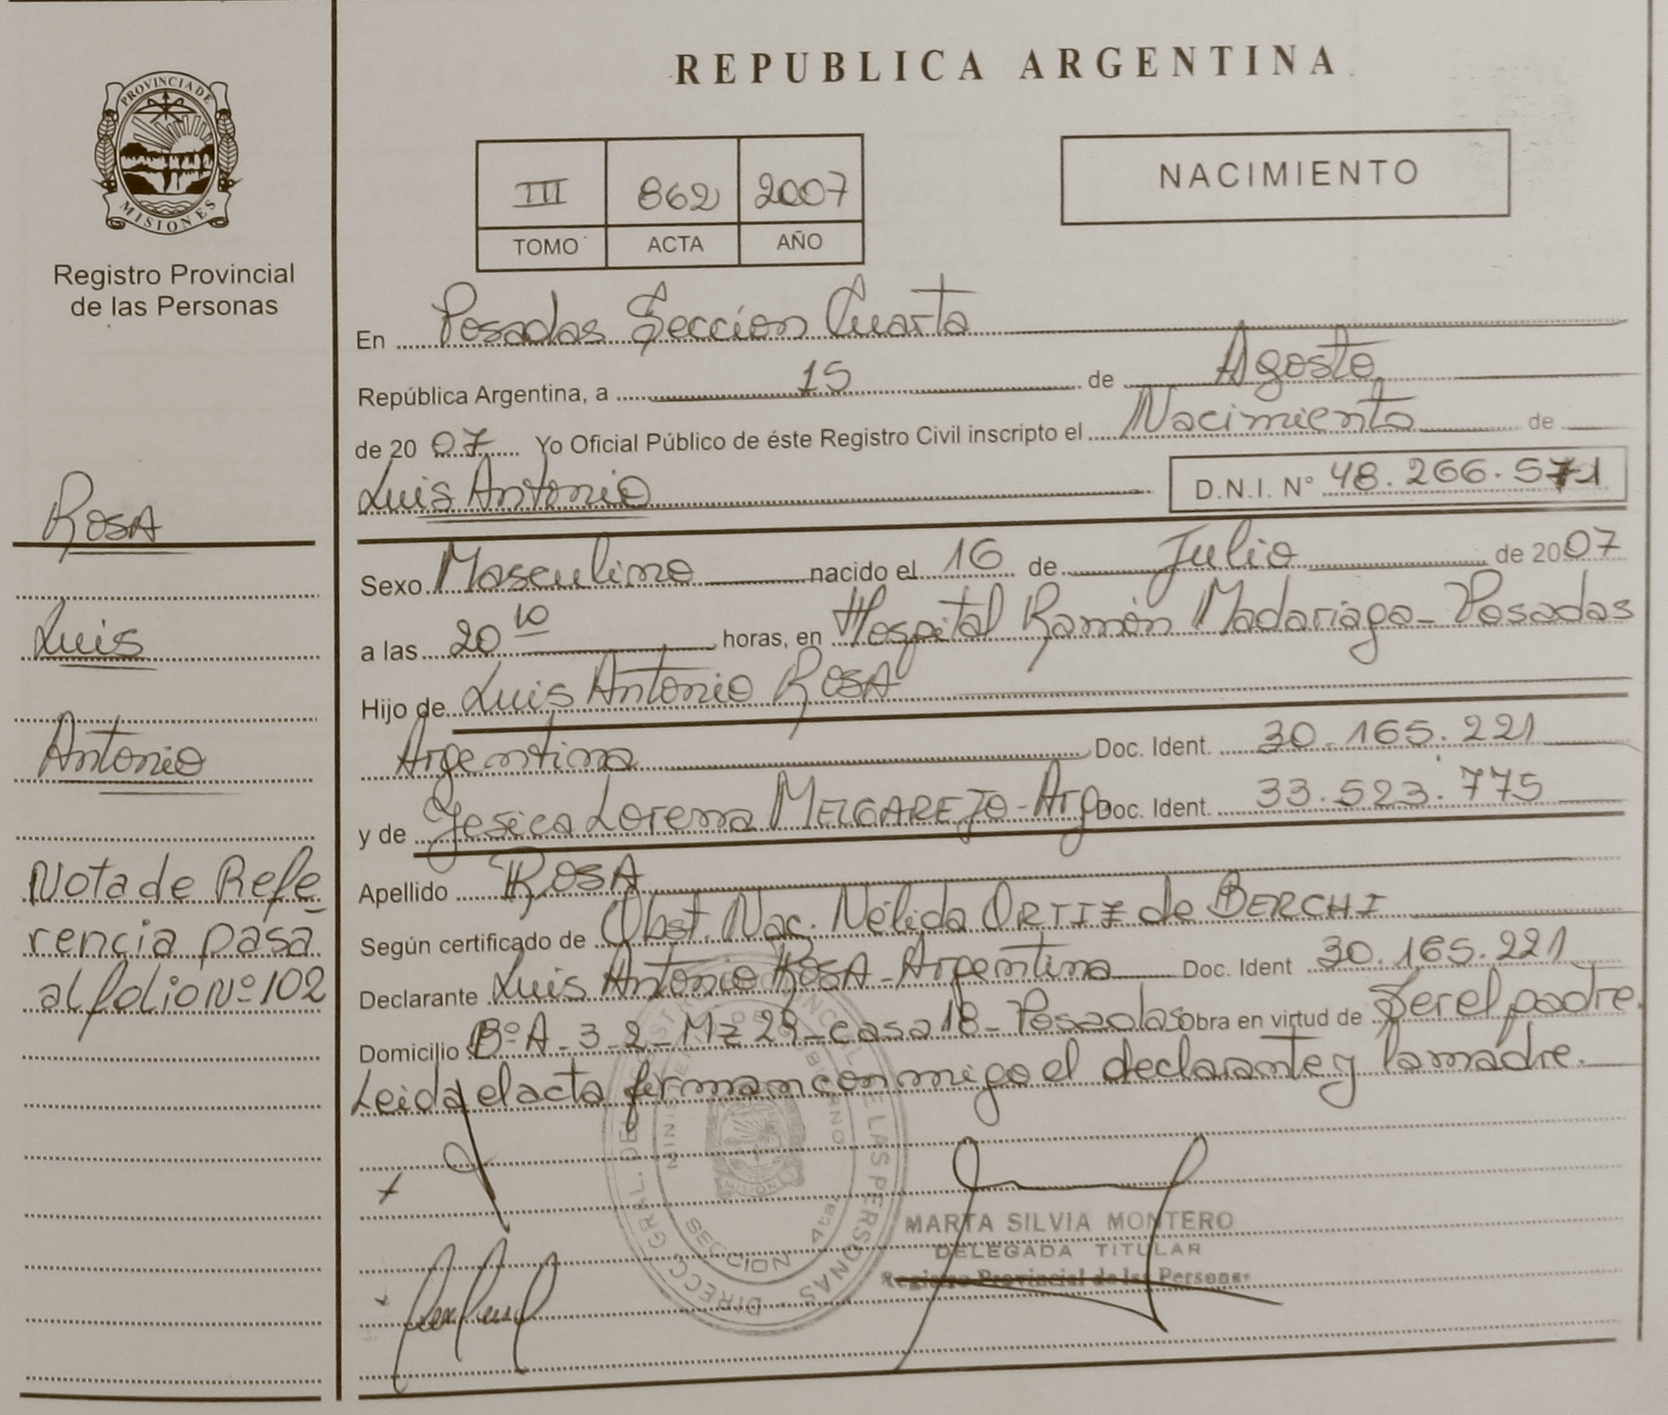 PROVINCIA DE
MISIONES
Registro Provincial
de las Personas
ROSA
Luis
Antonio
Nota de Refe
rencia pasa
al folio Nº 102
REPUBLICA ARGENTINA
III 862 2007
TOMO ACTA AÑO
NACIMIENTO
En Posadas Sección Cuarta
República Argentina, a 15 de Agosto
de 2007 Yo Oficial Público de éste Registro Civil inscripto el Nacimiento de
Luis Antonio D.N.I. N° 48.266.571
Sexo Masculino nacido el 16 de Julio de 2007
a las 20 10 horas, en Hospital Ramón Madariaga - Posadas
Hijo de Luis Antonio ROSA
Argentina Doc. Ident. 30.165.221
y de Yesica Lorena MELGAREJO - Arg. Doc. Ident. 33.523.775
Apellido ROSA
Según certificado de Obst. Nac. Nélida ORTIZ de BERCHI
Declarante Luis Antonio ROSA - Argentina Doc. Ident 30.165.221
Domicilio Bº A-3-2-Mz 29-casa 18- Posadas obra en virtud de Ser el padre.
Leida el acta firman conmigo el declarante y la madre.
MARTA SILVIA MONTERO
DELEGADA TITULAR
Registro Provincial de las Personas
SECCION 4ta.
MISIONES